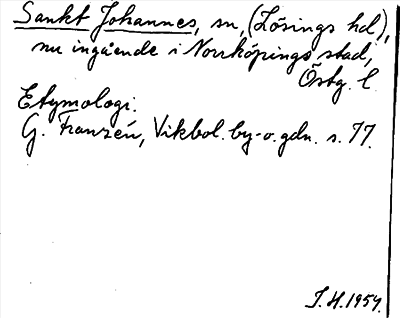 Sankt Johannes, sn, (Lösings hd),
nu ingående i Norrköpings stad,
Östg. l.
Etymologi.
G. Franzén, Vikbol. by- o. gdn. s. 77.
I. H. 1954.